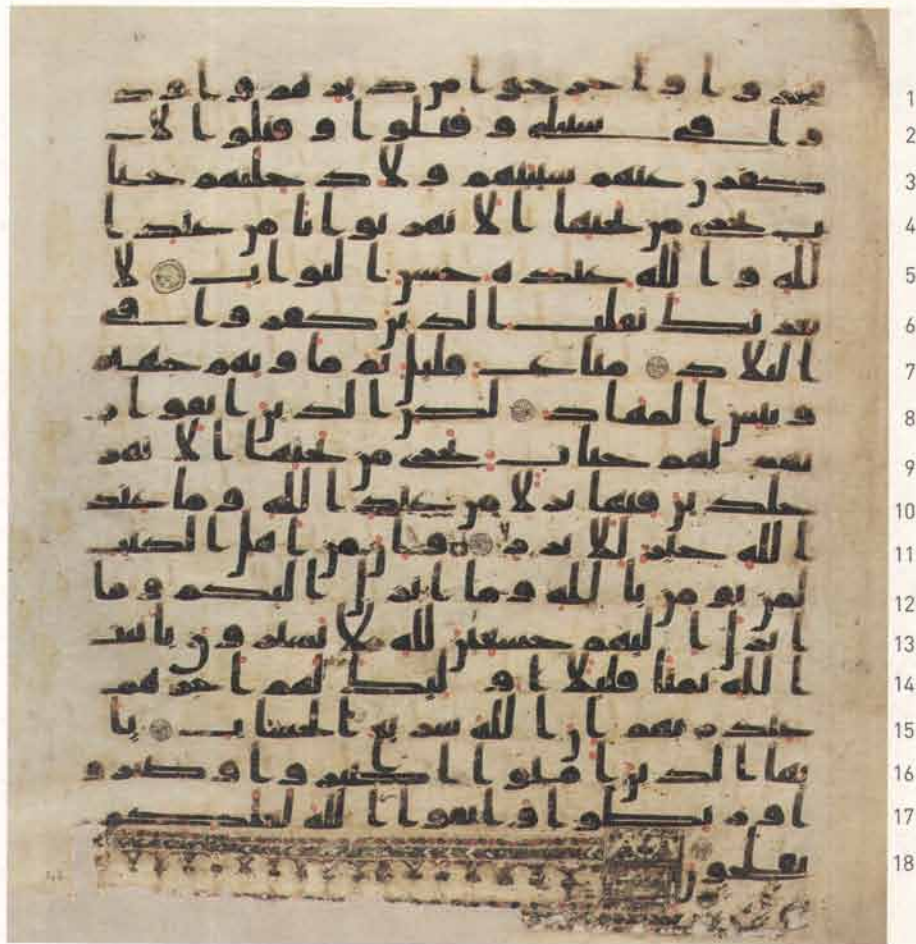 جروا واخرجوا من ديرهم واوذ 1
وا في سبيلي وقتلوا وقتلوا لا 2
كفرن عنهم سيئتهم ولادخلنهم جنا 3
ت تجري من تحتها الانهر ثوابا من عند ا 4
لله والله عنده حسن الثواب لا 5
يغرنك تقلب الذين كفروا في 6
البلاد متاع قليل ثم ماويهم جهنم 7
وبئس المهاد لكن الذين اتقوا ر 8
بهم لهم جنات تجري من تحتها الانهر 9
خلدين فيها نزلا من عند الله وما عند 10
الله خير للابرار وان من اهل الكتب 11
لمن يومن بالله وما انزل اليكم وما 12
انزل اليهم خشعين لله لا يشترون بايت 13
الله ثمنا قليلا اولئك لهم اجرهم 14
عند ربهم ان الله سريع الحساب يا 15
يها الذين امنوا اصبروا وصبرو 16
ا ورابطوا واتقوا الله لعلكم 17
تفلحون 18